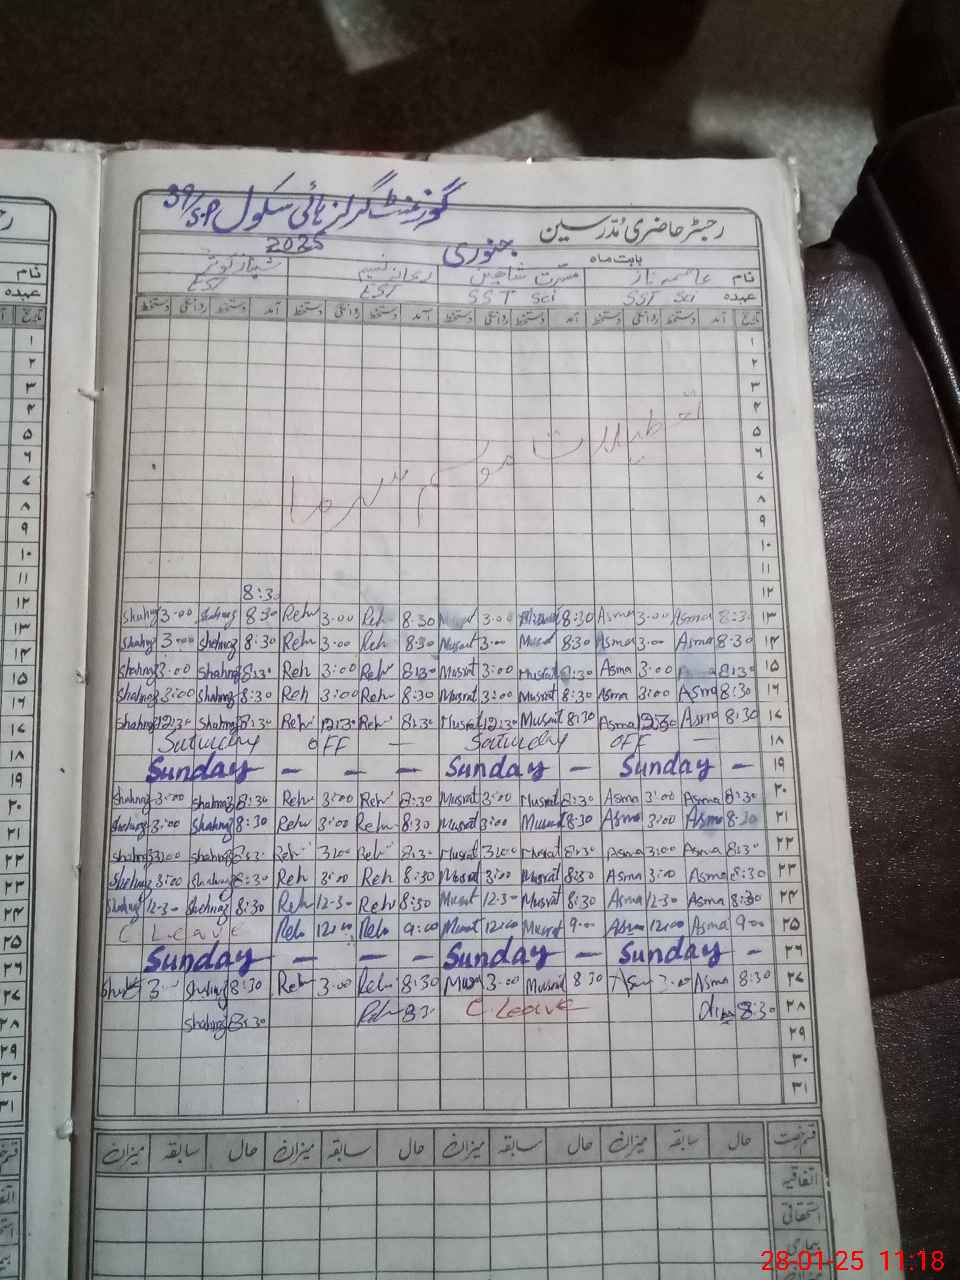 گورنمنٹ گرلز ہائی سکول 39/S.P
رجسٹر حاضری مدرسین
بابت ماہ جنوری 2025
نام عاصمہ ناز مسرت شاہین ریحانہ نسیم شہناز کوثر
عہدہ SST Sci SST Sci EST EST
تاریخ آمد دستخط روانگی دستخط آمد دستخط روانگی دستخط آمد دستخط روانگی دستخط آمد دستخط روانگی دستخط
۱
۲
۳
۴
۵
تعطیلات موسم سرما
۶
۷
۸
۹
۱۰
۱۱
8:30 ۱۲
3.00 Shahnaz 8:30 Reh 3.00 Reh 8:30 3.00 8:30 Asma 3.00 Asma 8:30 ۱۳
3.00 Shahnaz 8:30 Reh 3.00 Reh 8:30 Musrat 3.00 8:30 Asma 3.00 Asma 8:30 ۱۴
Shahnaz 3:00 Shahnaz 8:30 Reh 3:00 Reh 8:30 Musrat 3:00 Musrat 8:30 Asma 3:00 8:30 ۱۵
Shahnaz 3:00 Shahnaz 8:30 Reh 3:00 Reh 8:30 Musrat 3:00 Musrat 8:30 Asma 3:00 Asma 8:30 ۱۶
Shahnaz 12:30 Shahnaz 8:30 Reh 12:30 Reh 8:30 Musrat 12:30 Musrat 8:30 Asma 12:30 Asma 8:30 ۱۷
Saturday OFF — Saturday OFF — ۱۸
Sunday — — — Sunday — Sunday — ۱۹
Shahnaz 3:00 Shahnaz 8:30 Reh 3:00 Reh 8:30 Musrat 3:00 Musrat 8:30 Asma 3:00 Asma 8:30 ۲۰
Shahnaz 3:00 Shahnaz 8:30 Reh 3:00 Reh 8:30 Musrat 3:00 Musrat 8:30 Asma 3:00 Asma 8:30 ۲۱
Shahnaz 3:00 Shahnaz 8:30 Reh 3:00 Reh 8:30 Musrat 3:00 Musrat 8:30 Asma 3:00 Asma 8:30 ۲۲
Shahnaz 3:00 Shahnaz 8:30 Reh 3:00 Reh 8:30 Musrat 3:00 Musrat 8:30 Asma 3:00 Asma 8:30 ۲۳
Shahnaz 12-30 Shahnaz 8:30 Reh 12-30 Reh 8:30 Musrat 12-30 Musrat 8:30 Asma 12-30 Asma 8:30 ۲۴
C Leave Reh 12:00 Reh 9:00 Musrat 12:00 Musrat 9:00 Asma 12:00 Asma 9:00 ۲۵
Sunday — — — Sunday — Sunday — ۲۶
3.00 Shahnaz 8:30 Reh 3.00 Reh 8:30 3.00 Musrat 8:30 3.00 Asma 8:30 ۲۷
Shahnaz 8:30 Reh 8:30 C. Leave 8:30 ۲۸
۲۹
۳۰
۳۱
قسم رخصت حال سابقہ میزان حال سابقہ میزان حال سابقہ میزان حال سابقہ میزان
اتفاقیہ
استحقاقی
بیماری
28-01-25 11:18